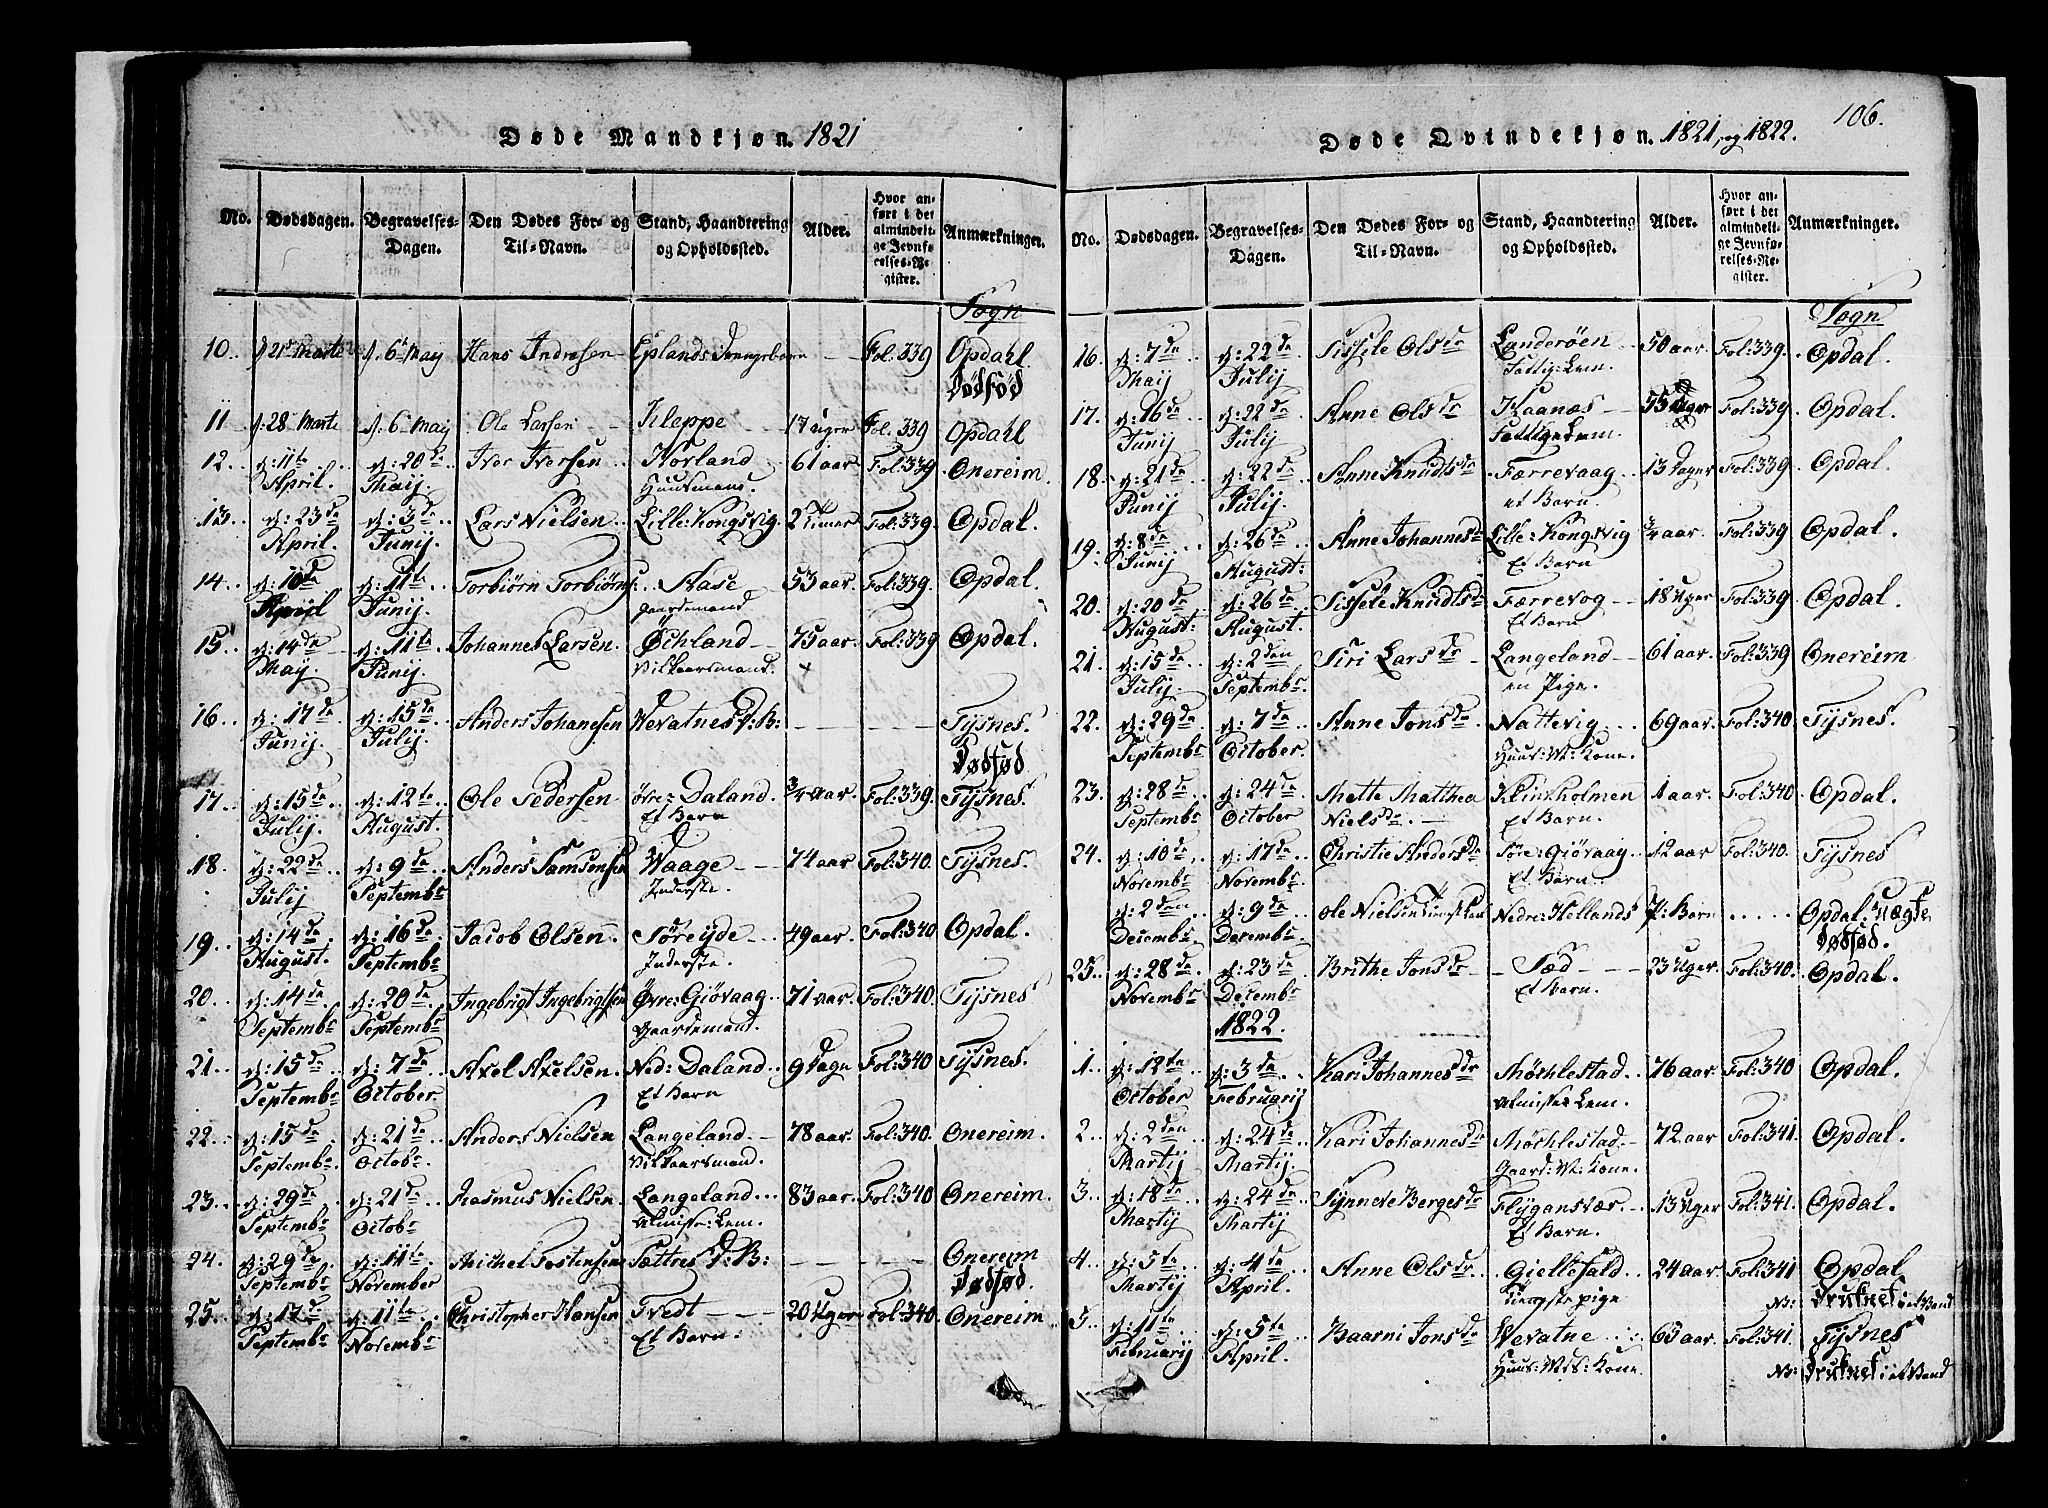 106.
Døde Mandkjøn. 1821
No. Dødsdagen. Begravelses-Dagen. Den Dødes For- og Til-Navn. Stand, Haandtering og Opholdssted. Alder. Hvor anført i det almindelige Jevnførelses-Register. Anmærkninger.
Sogn
10. 21 Marti 6 May Hans Andresen Eplands Drengebarn - - Fol: 339 Opdahl
Dødfød
11 28 Marti 6 May Ole Larsen Kleppe 17 uger Fol. 339 Opdahl
12. d: 11te d: 20de Iver Iversen Horland 61 aar Fol: 339 Onereim.
April. Maij. Huusmand.
13. d: 23de d: 3de Lars Nielsen Lille: Kongsvig. 2 Timer Fol: 339. Opdal.
April. Junij.
14. d: 10de d: 11te Torbiørn Torbiørns: Aase 53 aar. Fol: 339. Opdal.
April Junij. Gaardemand
15. d: 14de d: 11te Johannes Larsen. Øchland 75 aar. Fol: 339 Opdal.
May Junij. Vilkaarsmand.
16. d: 17de d: 15de Anders Johanesen Wevatnes P: B: - - - Tysnes.
Junij. Julij. Dødfød
17. d: 15de d: 12te Ole Pedersen øvre: Daland. 3/4 aar. Fol: 339. Tysnes.
Julij. August. Et Barn
18. d: 22de d: 9de Anders Samsonsen Waage 74 aar Fol: 340. Tysnes.
Julij Septembr Inderste.
19. d: 14de d: 16de Jacob Olsen Søreijde 49 aar. Fol: 340 Opdal.
August. Septembr Inderste.
20. d: 14de d: 20de Ingebrigt Ingebrigtsen Øvre: Giøvaag 71 aar. Fol: 340. Tysnes
Septembr Septembr Gaardemand.
21. d: 15de d: 7de Axel Axelsen. Ned: Daland 9 Dage Fol: 340 Tysnes.
Septembr October. Et Barn
22. d: 15de d: 21de Anders Nielsen Langeland. 78 aar. Fol: 340. Onereim.
Septembr. Octobr. Vilkaarsmand.
23. d: 29de d: 21de Rasmus Nielsen. Langeland 83 aar. Fol: 340 Onereim.
Septembr Octobr Almisse: Lem.
24. d: 29de d: 11te Michel Tostensen Sættres P: B: - - - Onereim
Septembr November Dødfød.
25. d: 17de d: 11te Christopher Hansen Tvedt 20 Uger Fol: 340. Onereim
Septembr Novembr Et Barn:
Døde Qvindekjøn. 1821, og 1822.
No. Dødsdagen. Begravelses-Dagen. Den Dødes For- og Til-Navn. Stand, Haandtering og Opholdssted. Alder. Hvor anført i det almindelige Jevnførelses-Register. Anmærkninger.
Sogn
16. d: 7de d: 22de Sissele Olsdr Landerøen 50 aar. Fol: 339. Opdal.
Maij Julij Fattig: Lem.
17. d: 16de d: 22de Anne Olsdr Kaanæs 53 Fol: 339. Opdal.
Junij Julij Fattige Lem.
18. d: 21de d: 22de Anne Knudtsdr Færrevaag 13 Dager Fol: 339. Opdal.
Junij Julij. et Barn
19. d: 8de d: 26de Anne Johannesdr Lille: Kongsvig 3/4 aar. Fol: 339 Opdal.
Junij August: Et Barn
20. d: 20de d: 26de Sissele Knudtsdr Færrevog 18 Uger Fol: 339 Opdal.
August: August. Et Barn
21. d: 15de d: 2den Siri Larsdr Langeland 61 aar. Fol: 339 Onereim
Julij. Septembr en Pige.
22. d: 29de d: 7de Anne Jonsdr Nattevig 69 aar Fol: 340 Tysnes.
Septembr October. Huus: M: Kone.
23. d: 28de d: 24de Mette Matthea Klinkholmen 1 aar. Fol: 340. Opdal.
Septembr October Nielsdr. Et Barn.
24. d: 10de d: 17de Christie Andersdr Søre: Giøvaag 12 aar Fol: 340. Tysnes
Novembr Novembr. Et Barn
d: 2den d: 9de Ole Nielsen Nedre: Hellands P: Barn Opdal: Uægte
Decembr Decembr. Dødfød.
25. d: 28de d: 23de Brithe Jonsdr Sæd 23 Uger. Fol: 340. Opdal.
Novembr Decembr Et Barn.
1822.
1. d: 12te d: 3de Kari Johannesdr Møchlestad 76 aar. Fol: 340 Opdal.
October Februarij Almisse Lem.
2. d: 2den d: 24de Kari Johannesdr Møchlestad 72 aar Fol: 341. Opdal.
Martij Martij. Gaard: M: Kone.
3. d: 18de d: 24de Synneve Bergesdr Flygansvær 13 Uger Fol: 341. Opdal.
Martij Martij Et Barn.
4. d: 5te d: 4de Anne Olsdr Giellefald 24 aar Fol: 341 Opdal
Martij April. pige Nb: Druknet i et Vand
5. d: 11te d: 5te Baarni Jonsdr Wevatne 63 aar. Fol: 341. Tysnes
Februarij April. Huus: Ms: Kone. Nb: Druknet i et Vand